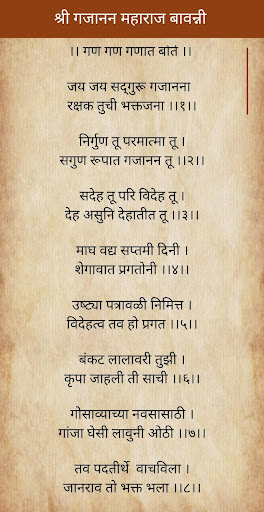 श्री गजानन महाराज बावन्नी
।। गण गण गणात बोते ।।
जय जय सद्‌गुरू गजानना
रक्षक तुची भक्तजना ।।१।।
निर्गुण तू परमात्मा तू ।
सगुण रूपात गजानन तू ।।२।।
सदेह तू परि विदेह तू ।
देह असुनि देहातीत तू ।।३।।
माघ वद्य सप्तमी दिनी ।
शेगावात प्रगतोनी ।।४।।
उष्ट्या पत्रावळी निमित्त ।
विदेहत्व तव हो प्रगत ।।५।।
बंकट लालावरी तुझी ।
कृपा जाहली ती साची ।।६।।
गोसाव्याच्या नवसासाठी ।
गांजा घेसी लावुनी ओठी ।।७।।
तव पदतीर्थे वाचविला ।
जानराव तो भक्त भला ।।८।।